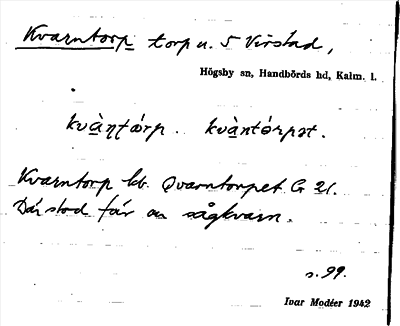 Kvarntorp torp u. S Virstad,
Högsby sn, Handbörds hd, Kalm. l.
kvàɳʈórp. kvàntórpət.
Kvarntorp kb. Qvarntorpet G 21.
Där stod förr en sågkvarn.
s. 99.
Ivar Modéer 1942